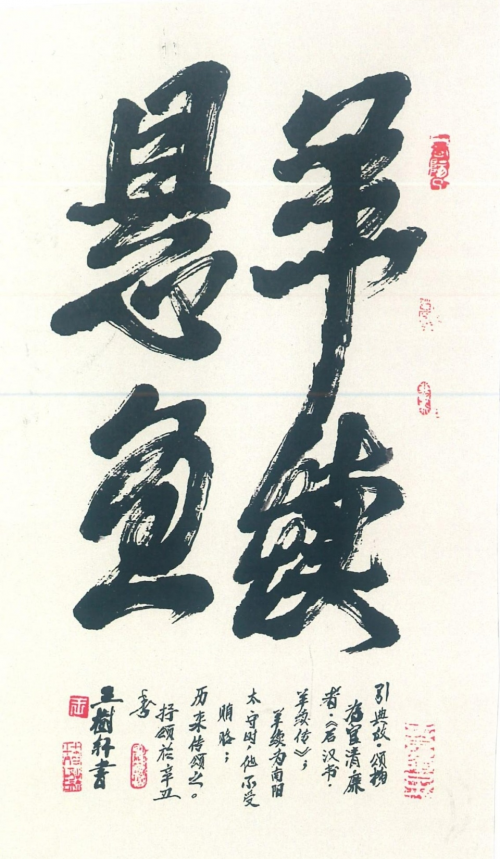 羊续
悬鱼
引典故，颂
为官清廉
者《后汉书·
羊续传》；
羊续为南阳
太守时，他不受
贿赂；
历来传颂之。
抒颂於辛丑
春
王樹書
王